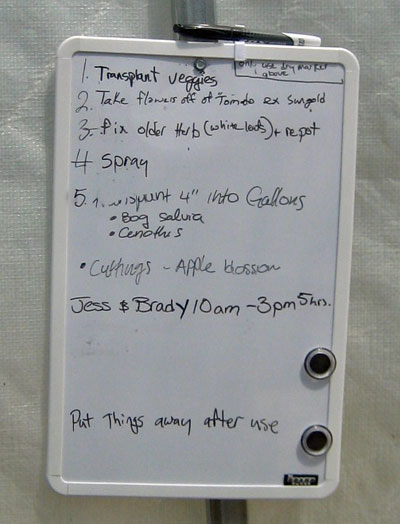 only use dry marker
above
1. Transplant veggies
2. Take flowers off of Tomato ex Sungold
3. Fix older Herb (white leafs) + repot
4 Spray
5. into Gallons 4"
• Bog salvia
• Cenothes
• Cuttings - Apple blossom
Jess & Brady 10am - 3pm 5hrs.
Put Things away after use